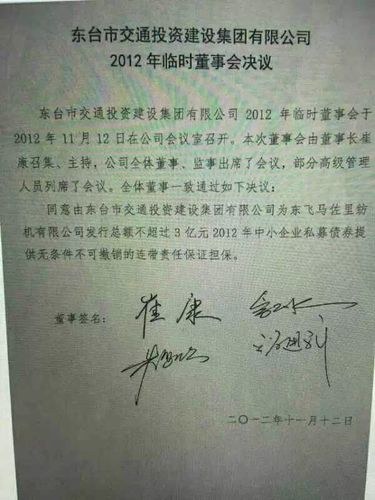 东台市交通投资建设集团有限公司
2012年临时董事会决议
东台市交通投资建设集团有限公司 2012 年临时董事会于
2012 年 11 月 12 日在公司会议室召开。本次董事会由董事长崔
康召集、主持，公司全体董事、监事出席了会议，部分高级管理
人员列席了会议。全体董事一致通过如下决议：
同意由东台市交通投资建设集团有限公司为东飞马佐里纺
机有限公司发行总额不超过 3 亿元 2012 年中小企业私募债券提
供无条件不可撤销的连带责任保证担保。
董事签名：
崔康
二〇一二年十一月十二日